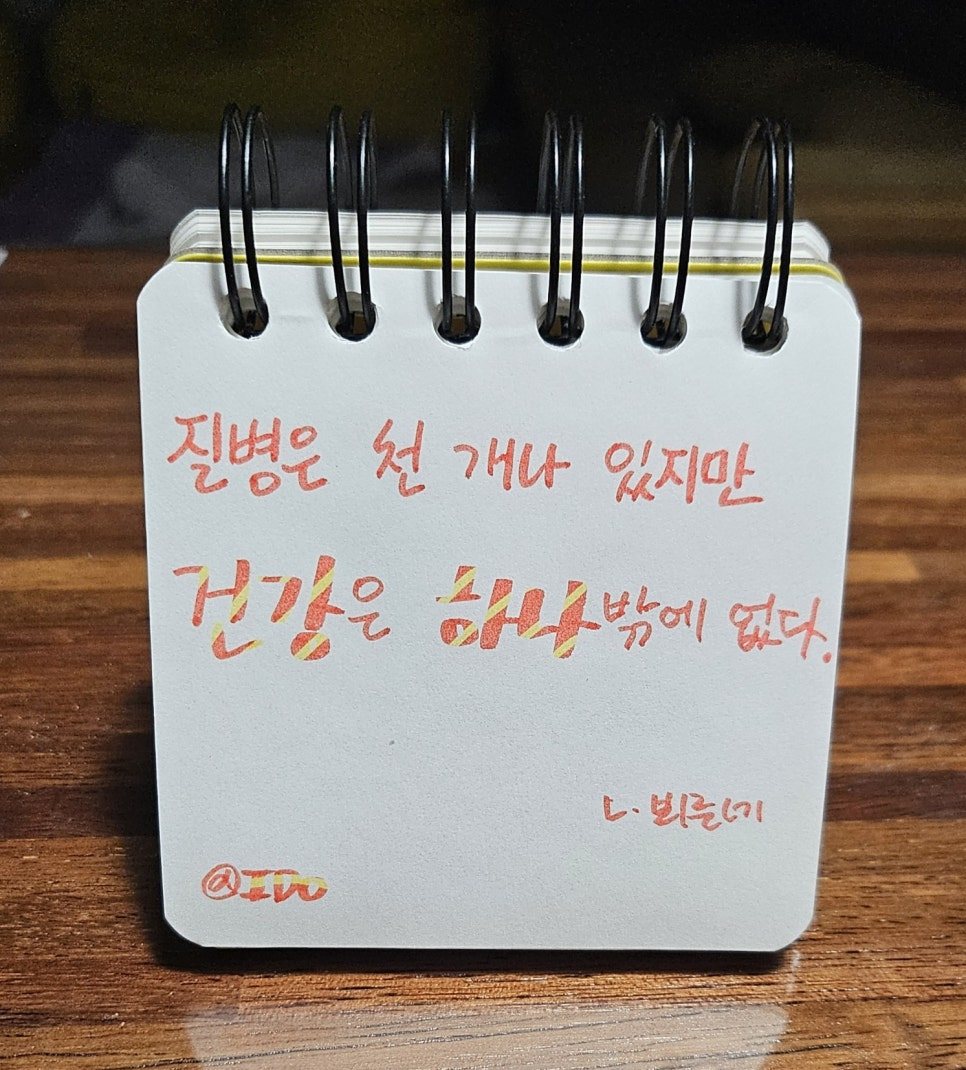 질병은 천 개나 있지만
건강은 하나밖에 없다.
L. 뵈르네
@IDO